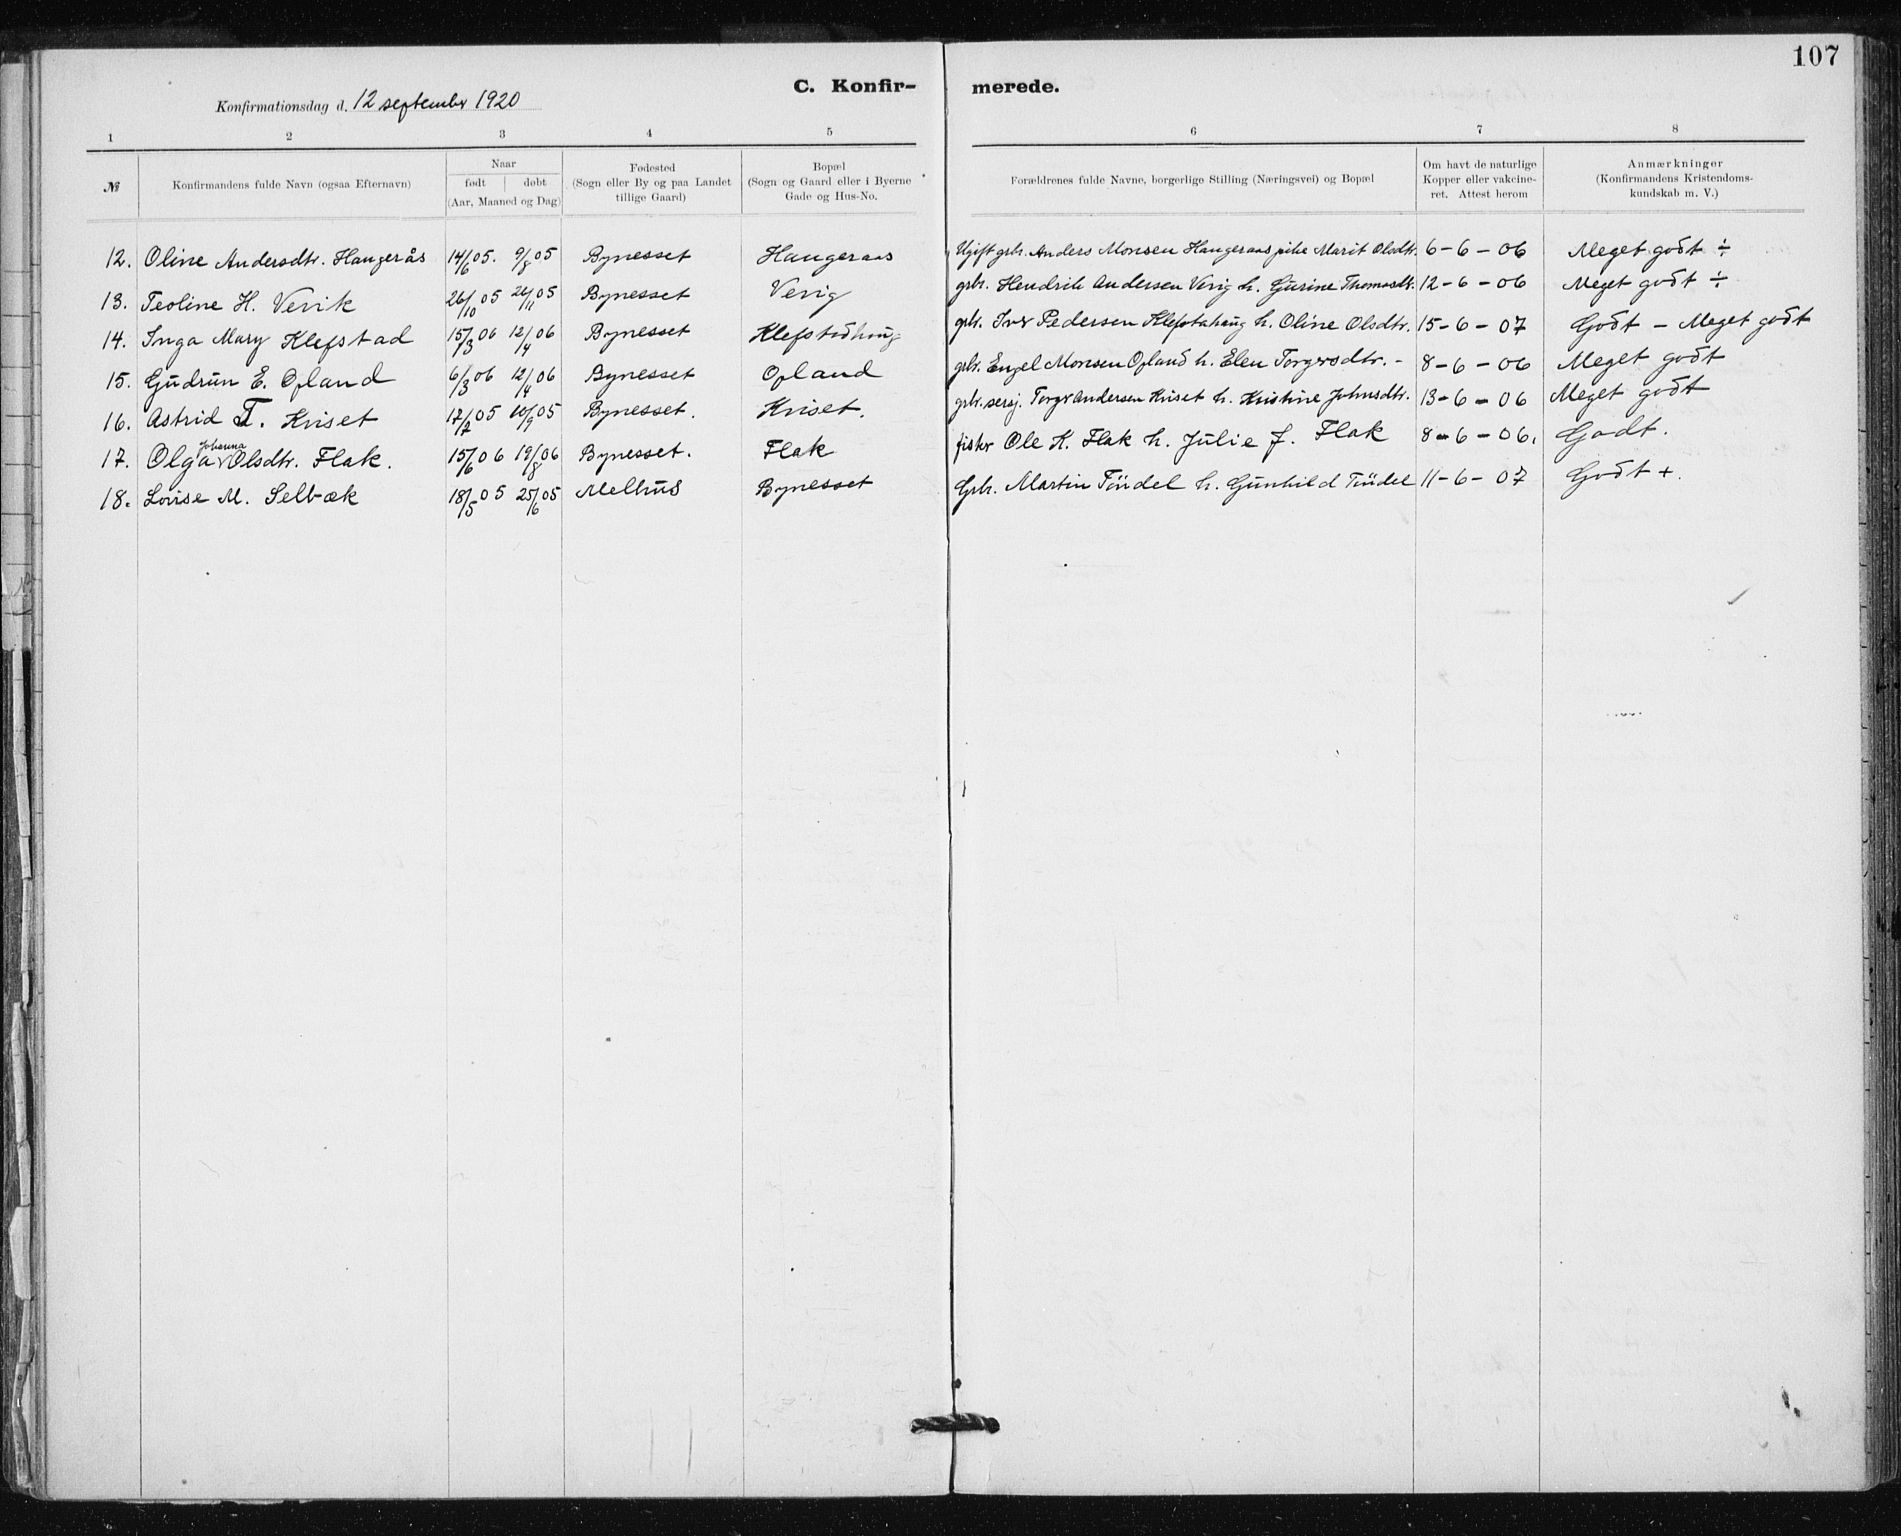 107
C. Konfir- merede.
Konfirmationsdag d. 12 september 1920
1 2 3 4 5 6 7 8
№ Konfirmandens fulde Navn (ogsaa Efternavn) Naar født døbt (Aar, Maaned og Dag) Fødested (Sogn eller By og paa Landet tillige Gaard) Bopæl (Sogn og Gaard eller i Byerne Gade og Hus-No. Forældrenes fulde Navne, borgerlige Stilling (Næringsvei) og Bopæl Om havt de naturlige Kopper eller vakcineret. Attest herom Anmærkninger (Konfirmandens Kristendomskundskab m. V.)
12. Oline Andersdtr. Haugerås 14/6 05. 9/8 05 Bynesset Haugeraas Ugift grbr. Anders Monsen Haugeraas pike Marit Olsdtr. 6-6-06 Meget godt ÷
13. Teoline H. Verik 26/10 05 26/11 05 Bynesset Verig grbr. Hendrik Andersen Verig h. Gurine Thomasdtr. 12-6-06 Meget godt ÷
14. Inga Mary Klefstad 15/3 06 12/4 06 Bynesset Klefstadhaug grbr. Iver Pedersen Klefstahaug h. Oline Olsdtr. 15-6-07 Godt - Meget godt
15. Gudrun E. Opland 6/3 06 12/4 06 Bynesset Opland grbr. Engel Monsen Opland h. Elen Torgersdtr. - 8-6-06 Meget godt
16. Astrid T. Kviset 17/7 05 10/9 05 Bynesset. Kviset. grbr. sersj. Torger Andersen Kviset h. Kristine Johnsdtr. 13-6-06 Meget godt
17. Olga Johanna Olsdtr. Flak. 15/6 06 19/8 06 Bynesset. Flak fisker Ole K. Flak h. Julie J. Flak 8-6-06. Godt.
18. Lovise M. Selbæk 18/5 05 25/6 05 Melhus Bynesset Grbr. Martin Tøndel h. Gunhild Tøndel 11-6-07 Godt +.